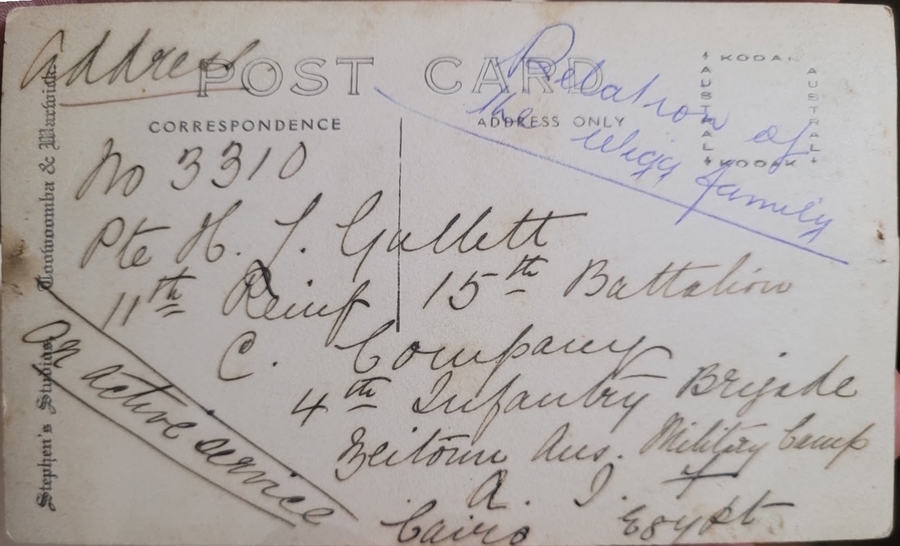 Address
POST CARD
CORRESPONDENCE
ADDRESS ONLY
KODAK
AUSTRAL
AUSTRAL
KODAK
Relation of
the Wigg family
No 3310
Pte H. J. Gullett
11th Reinf 15th Battalion
C. Company
4th Infantry Brigade
Zeitoun Aus. Military Camp
A. I. F
Cairo Egypt
on active service
Stephen's Studios, Toowoomba & Warwick.